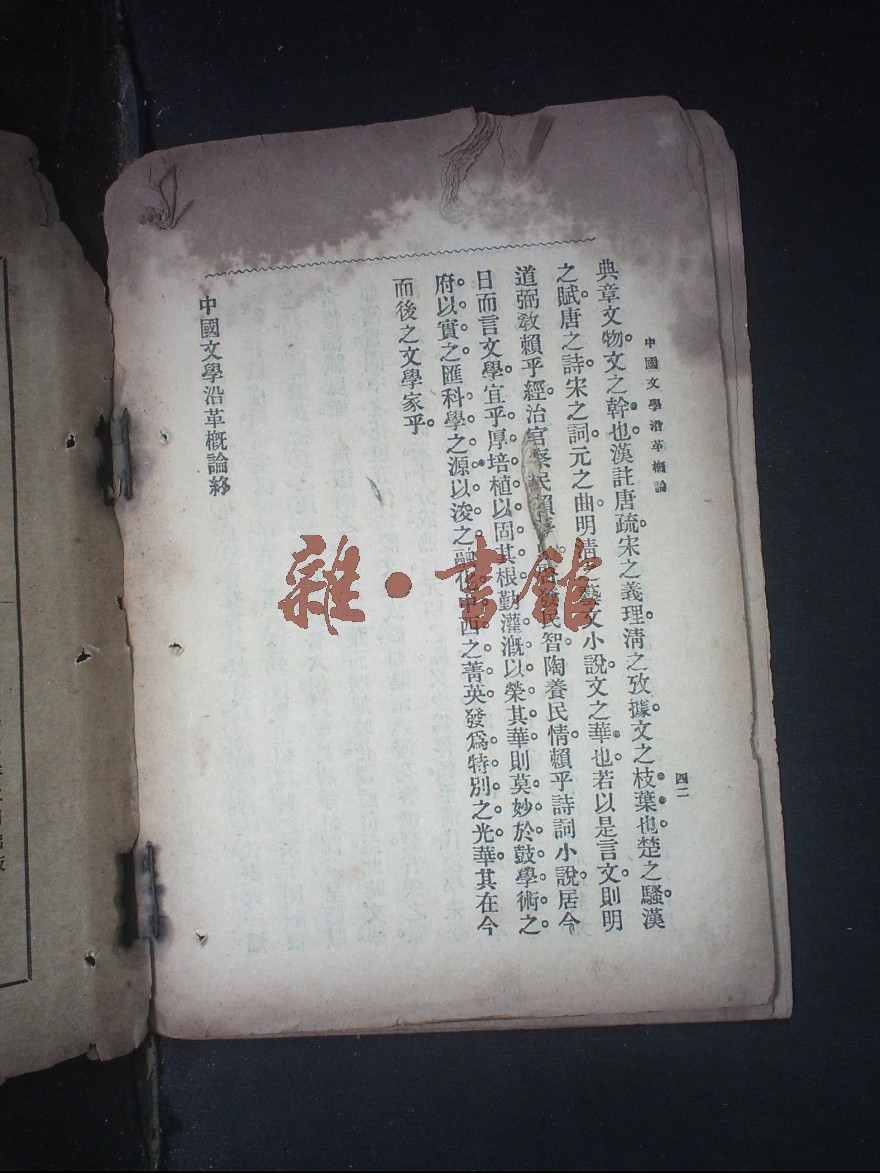 中國文學沿革概論
四二
典章文物。文之幹也。漢註唐疏。宋之義理。淸之攷據。文之枝葉也。楚之騷。漢
之賦。唐之詩。宋之詞。元之曲。明淸之藝文小說。文之華也。若以是言文。則明
道弼敎。賴乎經。治官察民。賴乎 民智。陶養民情。賴乎詩詞小說。居今
日而言文學。宜乎厚培植以固其根。勤灌漑以榮其華。則莫妙於鼓學術之
府以實之。匯科學之源以浚之。融化中西之菁英。發爲特別之光華。其在今
而後之文學家乎。
中國文學沿革概論終
雜·書館